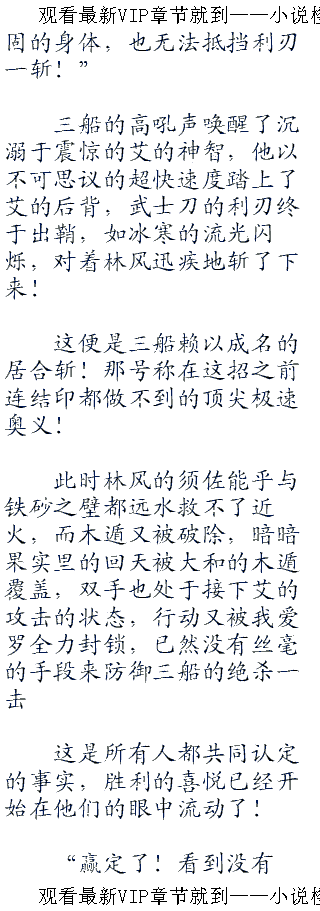 观看最新VIP章节就到——小说检
固的身体，也无法抵挡利刃
一斩！”
三船的高吼声唤醒了沉
溺于震惊的艾的神智，他以
不可思议的超快速度踏上了
艾的后背，武士刀的利刃终
于出鞘，如冰寒的流光闪
烁，对着林风迅疾地斩了下
来！
这便是三船赖以成名的
居合斩！那号称在这招之前
连结印都做不到的顶尖极速
奥义！
此时林风的须佐能乎与
铁砂之壁都远水救不了近
火，而木遁又被破除，暗暗
果实里的回天被大和的木遁
覆盖，双手也处于接下艾的
攻击的状态，行动又被我爱
罗全力封锁，已然没有丝毫
的手段来防御三船的绝杀一
击
这是所有人都共同认定
的事实，胜利的喜悦已经开
始在他们的眼中流动了！
“赢定了！看到没有
观看最新VIP章节就到——小说检